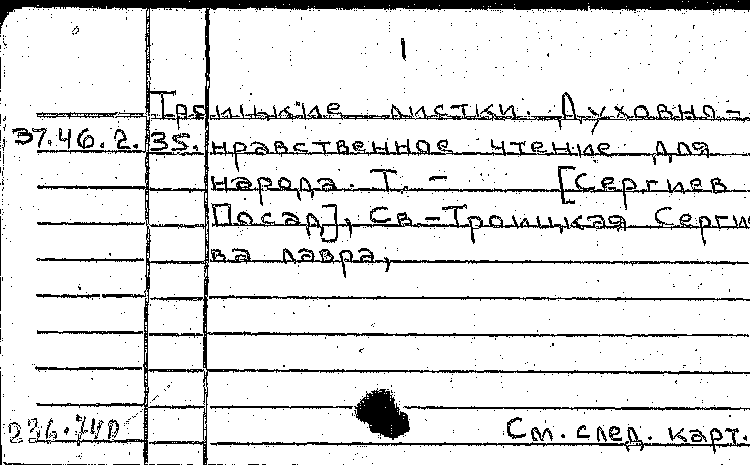 1
Троицкие листки. Духовно-
37.46.2.35. нравственное чтение для
народа. Т. - [Сергиев
Посад], Св-Троицкая Серги
ва лавра,
236.740
См. след. карт.